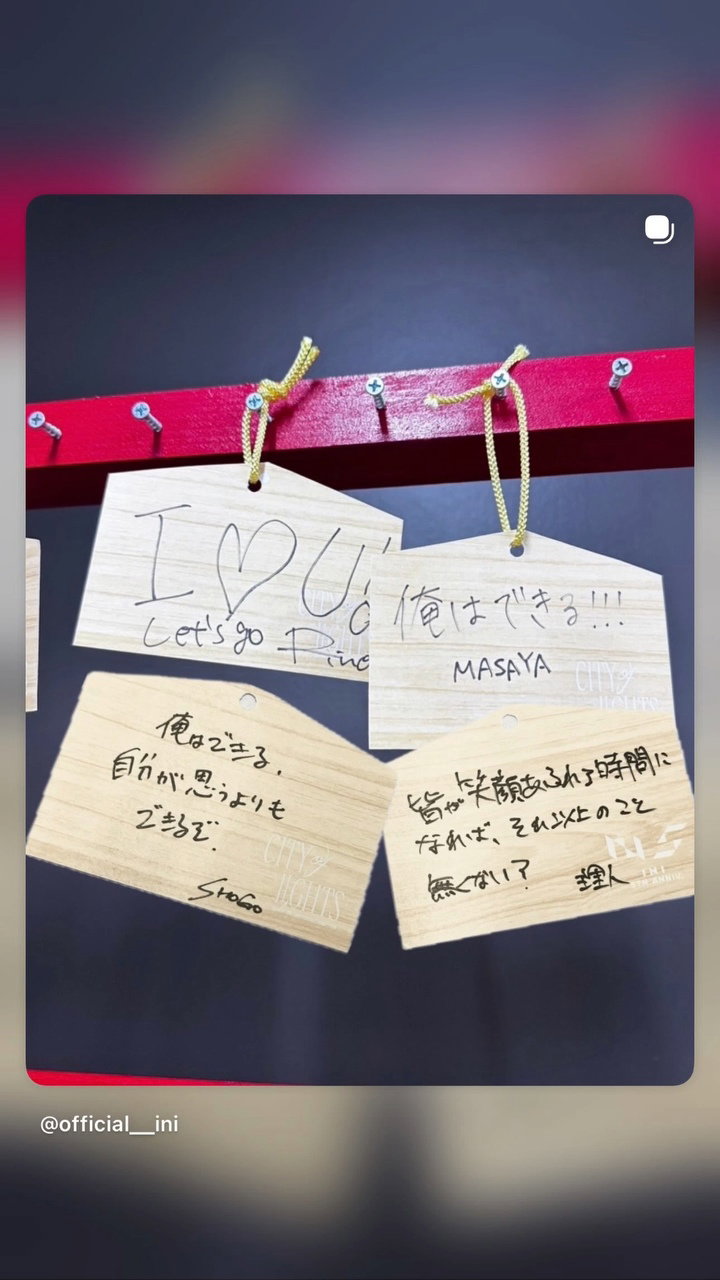 I ♡ U!
Let's go
俺はできる!!!
MASAYA
CITY of LIGHTS
俺はできる.
自分が思うよりも
できるぞ.
SHOGO
CITY of
LIGHTS
皆が笑顔あふれる時間に
なれば、それ以上のこと
無くない?
理人
INI
5TH ANNIV.
@official__ini